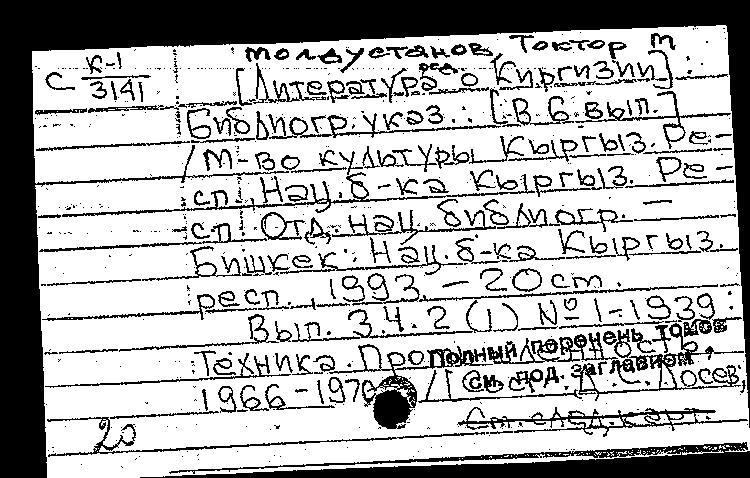 Молдустанов, Токтор М
ред.
С К-1
3141
[Литература о Киргизии]:
Библиогр. указ.: [-В 6 вып.]
/ М-во культуры Кыргыз. Ре-
сп., Нац. б-ка Кыргыз. Ре-
сп. Отд. нац. библиогр. —
Бишкек: Нац. б-ка Кыргыз.
респ., 1993. - 20 ст.
Вып. 3.4.2 (1) № 1-1939:
Техника. Про
Полный перечень томов
см. под. заглавием,
1966-1970 / [С. Лосев;
20
См. след. карт.